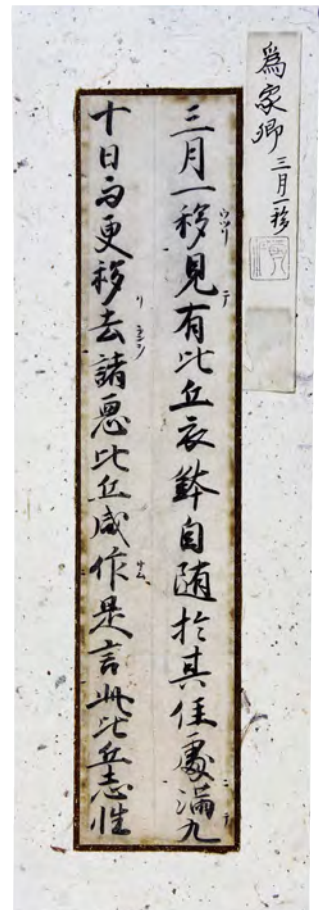 爲家卿 三月一移
三月一移見有比丘衣鉢自随於其住處滿九
十日而更移去諸悪比丘咸作是言此比丘志性